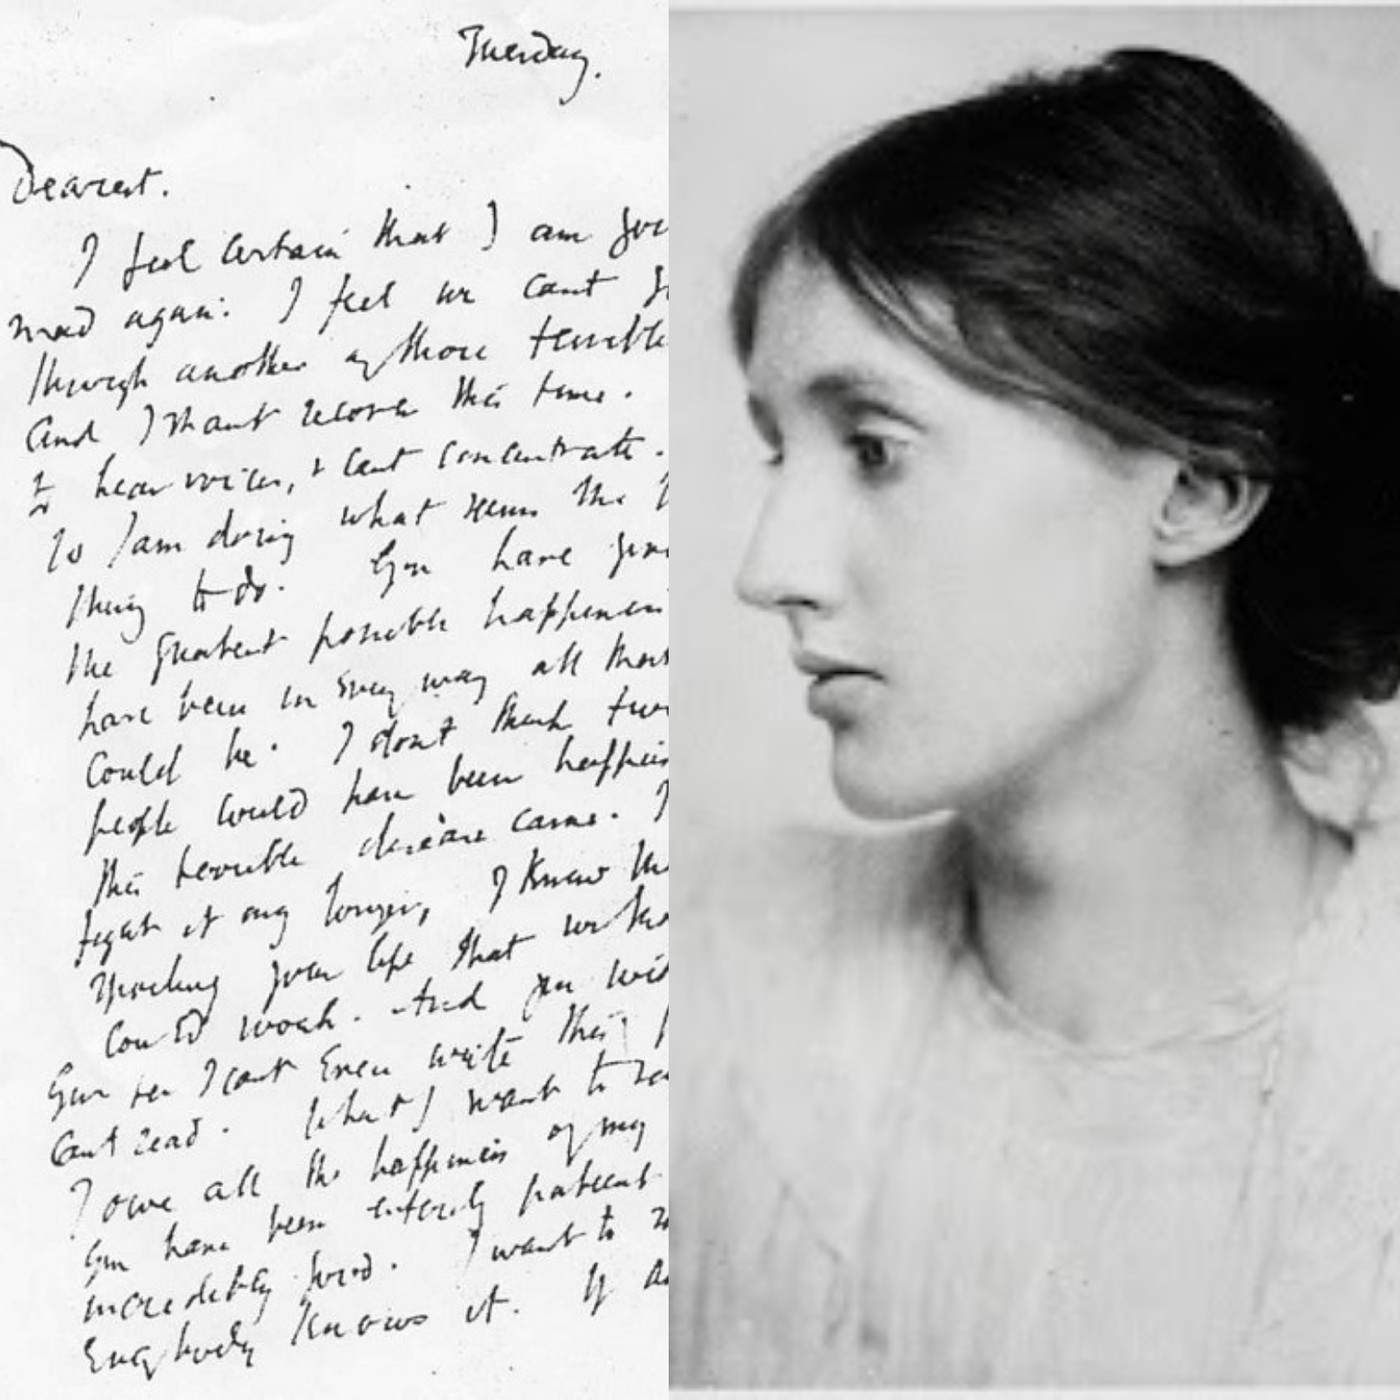 Tuesday.
Dearest.
I feel certain that I am
mad again: I feel we cant
through another of those terrible
And I shant recover this time.
I hear voices, & cant concentrate.
So I am doing what seems the
thing to do. You have
the greatest possible
have been in every way all
could be. I dont think
people could have been
this terrible disease came.
fight it any longer, I know
spoiling your life that
could work. And you
You see I cant even write this
Cant read. What I want to
I owe all the happiness of my
You have been entirely patient
incredibly good. I want to
Everybody knows it. If